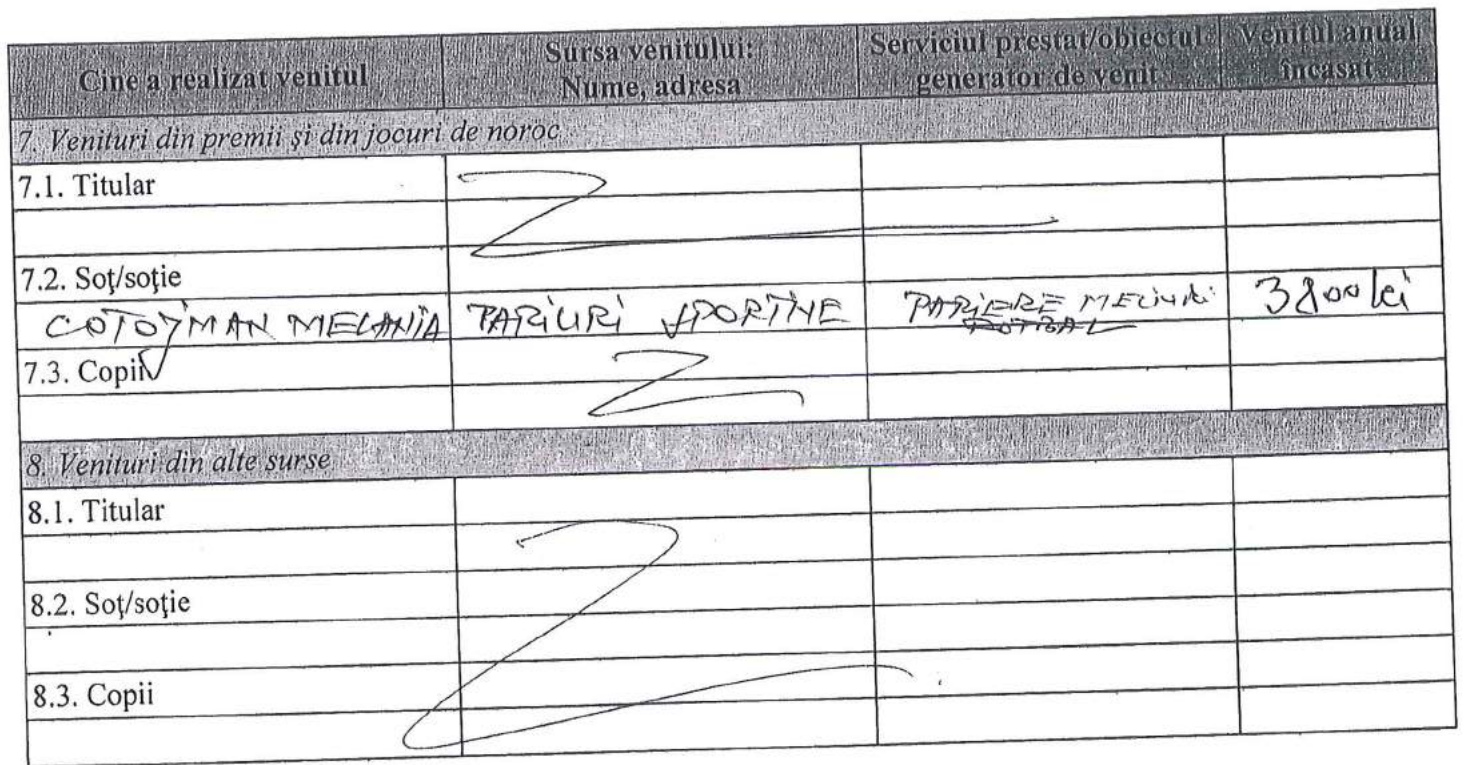 Cine a realizat venitul Sursa venitului: Nume, adresa Serviciul prestat/obiectul generator de venit Venitul anual încasat
7. Venituri din premii şi din jocuri de noroc
7.1. Titular
7.2. Soţ/soţie
COTOJMAN MELANIA PARIURI SPORTIVE PARIERE MECIURI FOTBAL 3800 lei
7.3. Copii
8. Venituri din alte surse
8.1. Titular
8.2. Soţ/soţie
8.3. Copii